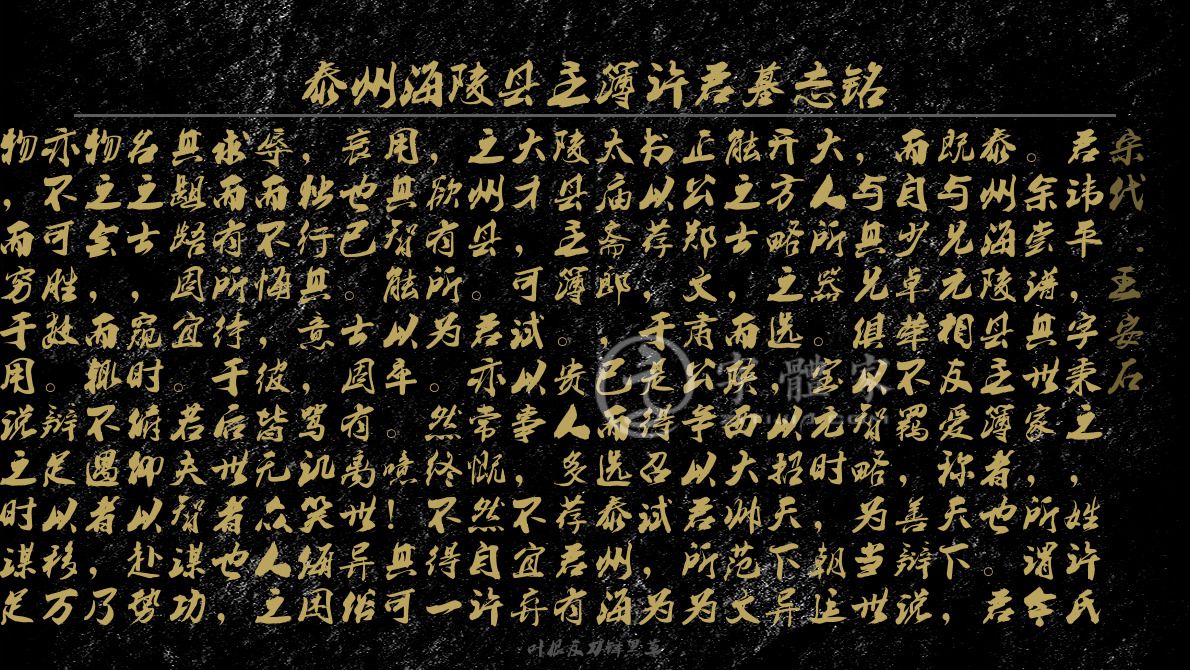 泰州海陵县主簿许君墓志铭
宋代·王安石
君讳平，字秉之，姓许氏
。余尝谱其世家，所谓今
泰州海陵县主簿者也。君
既与兄元相友爱称天下，
而自少卓荦不羁，善辩说
，与其兄俱以智略为当世
大人所器。宝元时，朝廷
开方略之选，以招天下异
能之士，而朕西大帅范文
正公郑文肃公争以君所为
书以荐，于是得召试，为
太庙斋郎，已而选泰州海
陵县主簿。贵人多荐君有
大才，可试以事，不宜弃
之州县。君亦常慨然自许
，欲有所为。然终不得一
用其智能以卒。噫！其可
哀也已。士固有离世异俗
，独行其意，骂讥笑侮困
辱而不悔，彼皆无众人之
求而有所待于后世者也，
其龃龉固宜。若夫智谋功
名之士，窥时俯仰以赴势
物之会，而辄不遇者，乃
亦不可胜数。辩足以移万
物，而穷于用说之时谋足